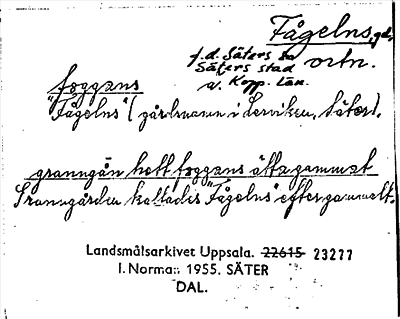 Fågelns, gd.
f.d. Säters so ortn.
Säters stad
v. Kopp. län.
foggans
"Fågelns" (gårdsnamn i Lerviken, Säter).
granngån hett foggans ätte gammalt
Granngården kallades "Fågelns" efter gammalt.
Landsmålsarkivet Uppsala. 22615 23277
I. Norman 1955. SÄTER
DAL.